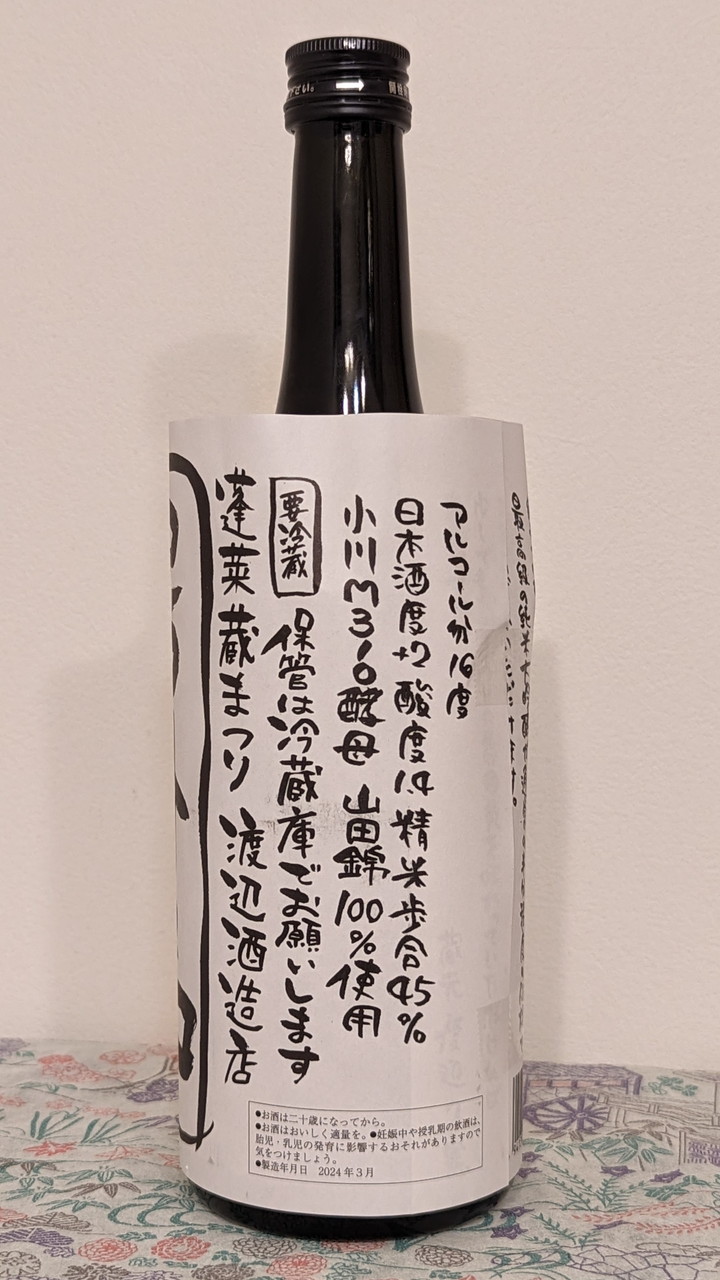 アルコール分16度
日本酒度+2 酸度1.4 精米歩合45%
小川M310酵母 山田錦100%使用
要冷蔵 保管は冷蔵庫でお願いします
蓬莱蔵まつり 渡辺酒造店
●お酒は二十歳になってから。
●お酒はおいしく適量を。●妊娠中や授乳期の飲酒は、
胎児・乳児の発育に影響するおそれがありますので
気をつけましょう。
●製造年月日 2024年3月